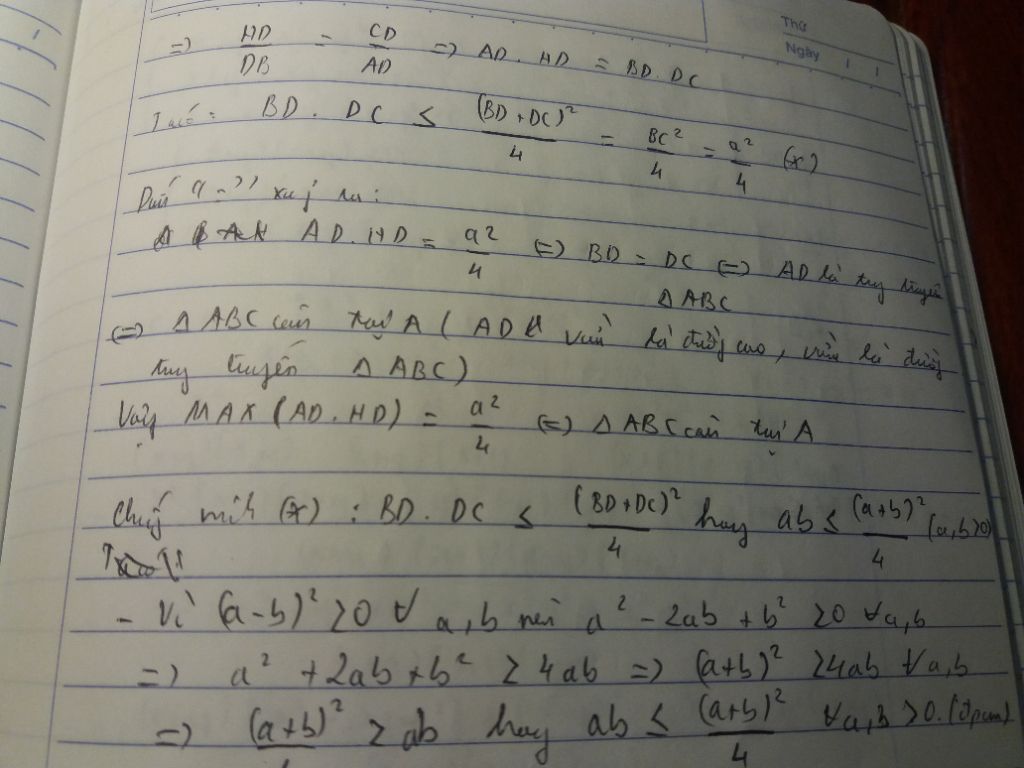 Thứ
Ngày
=> HD/DB = CD/AD => AD . HD = BD. DC
Ta có : BD . DC ≤ (BD + DC)²/4 = BC²/4 = a²/4 (*)
Dấu "=" xảy ra :
AD. HD = a²/4 <=> BD = DC <=> AD là trung tuyến
Δ ABC
<=> Δ ABC cân tại A ( AD vừa là đường cao, vừa là đường
trung tuyến Δ ABC)
Vậy MAX (AD. HD) = a²/4 <=> Δ ABC cân tại A
Chứng minh (*) : BD. DC ≤ (BD + DC)²/4 hay ab ≤ (a+b)²/4 (a,b>0)
- Vì (a-b)² ≥0 ∀ a,b nên a² - 2ab + b² ≥0 ∀a,b
=> a² + 2ab + b² ≥ 4ab => (a+b)² ≥4ab ∀a,b
=> (a+b)²/4 ≥ ab hay ab ≤ (a+b)²/4 ∀a,b >0. (đpcm)